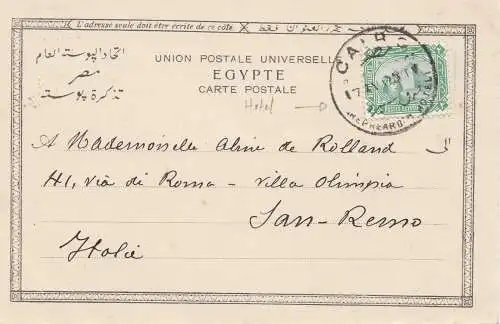 L'adresse seule doit être écrite de ce côté.
اتحاد البوستة العام
مصر
تذكرة بوستة
UNION POSTALE UNIVERSELLE
EGYPTE
CARTE POSTALE
Hotel
CAIRO
SHEPHEARD'S HOTEL
A Mademoiselle Aline de Rolland
41, via di Roma - Villa Olimpia
San-Remo
Italie